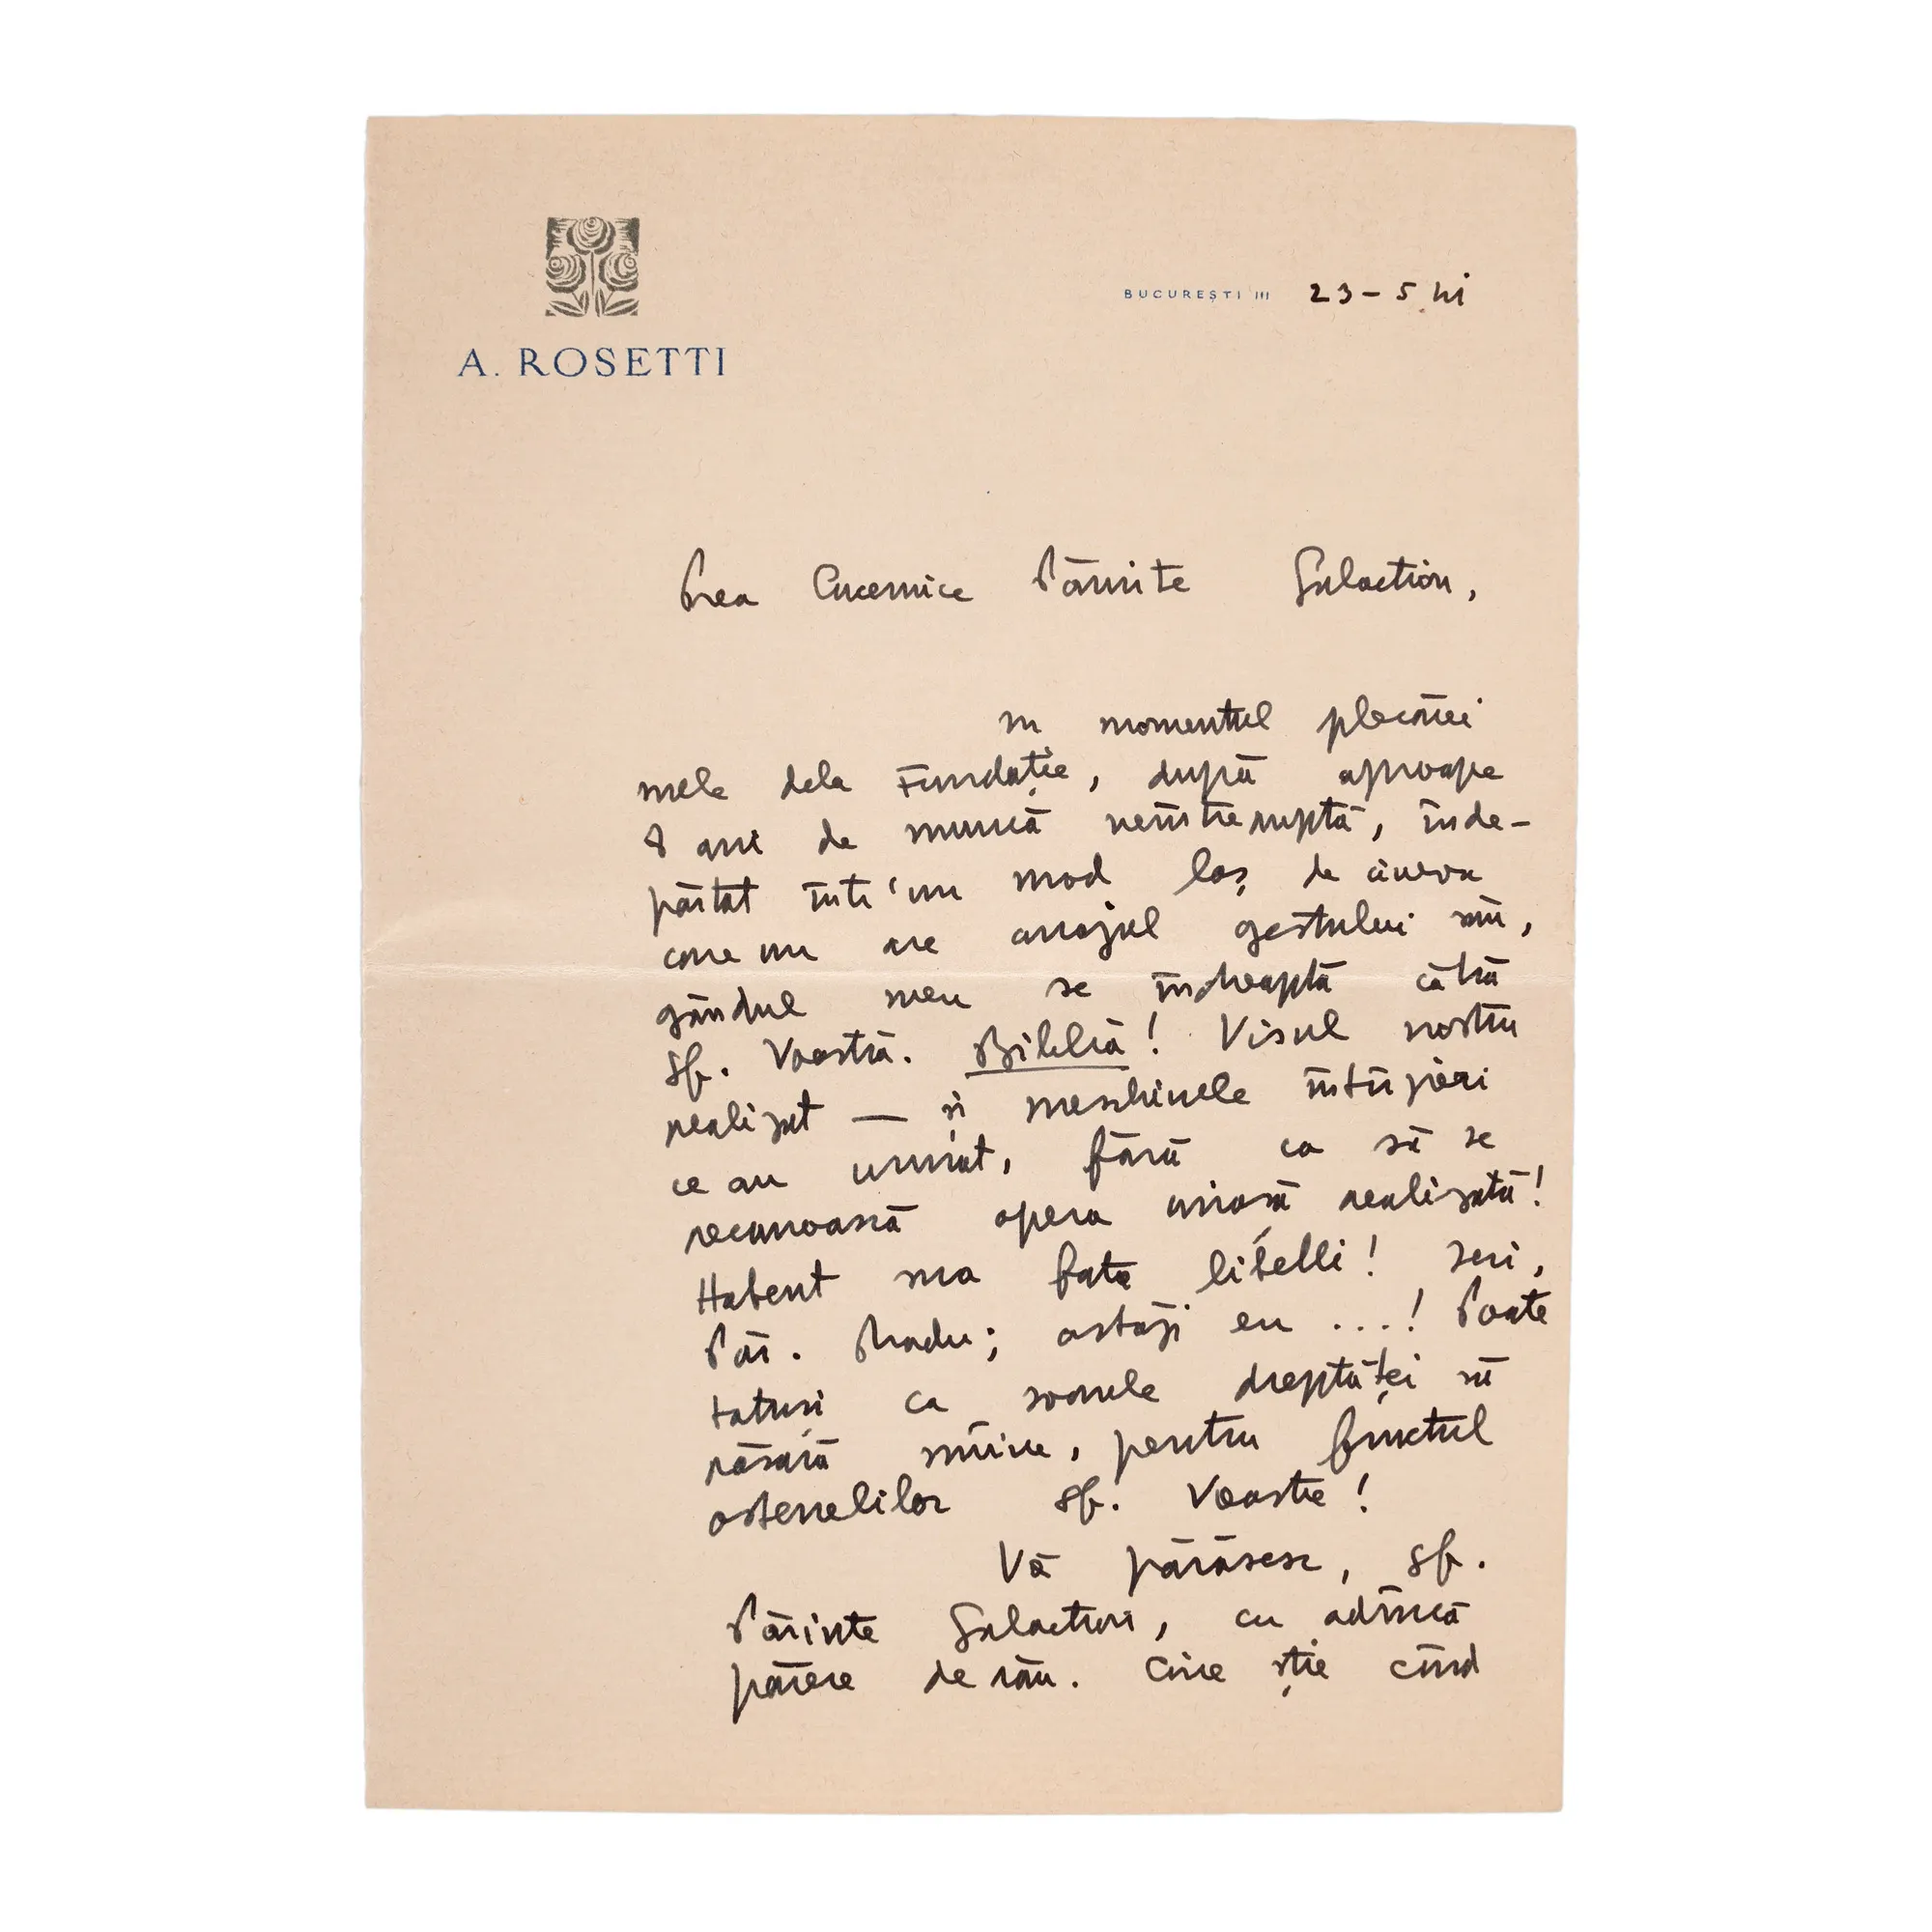 A. ROSETTI
BUCUREȘTI III 23-5.41
Prea Cucernice Părinte Galaction,
în momentul plecărei
mele dela Fundație, după aproape
8 ani de muncă neîntreruptă, înde-
părtat într'un mod laș de cineva
care nu are curajul gestului său,
gândul meu se îndreaptă către
Sf. Voastră. Biblia! Visul nostru
realizat — și meschinele întârzieri
ce au urmat, fără ca să se
recunoască opera uriașă realizată!
Habent sua fata libelli! Ieri,
Păr. Radu; astăzi eu ...! Poate
totuși ca soarele dreptăței să
răsară mâine, pentru fructul
ostenelilor Sf. Voastre!
Vă părăsesc, Sf.
Părinte Galaction, cu adîncă
părere de rău. Cine știe cînd